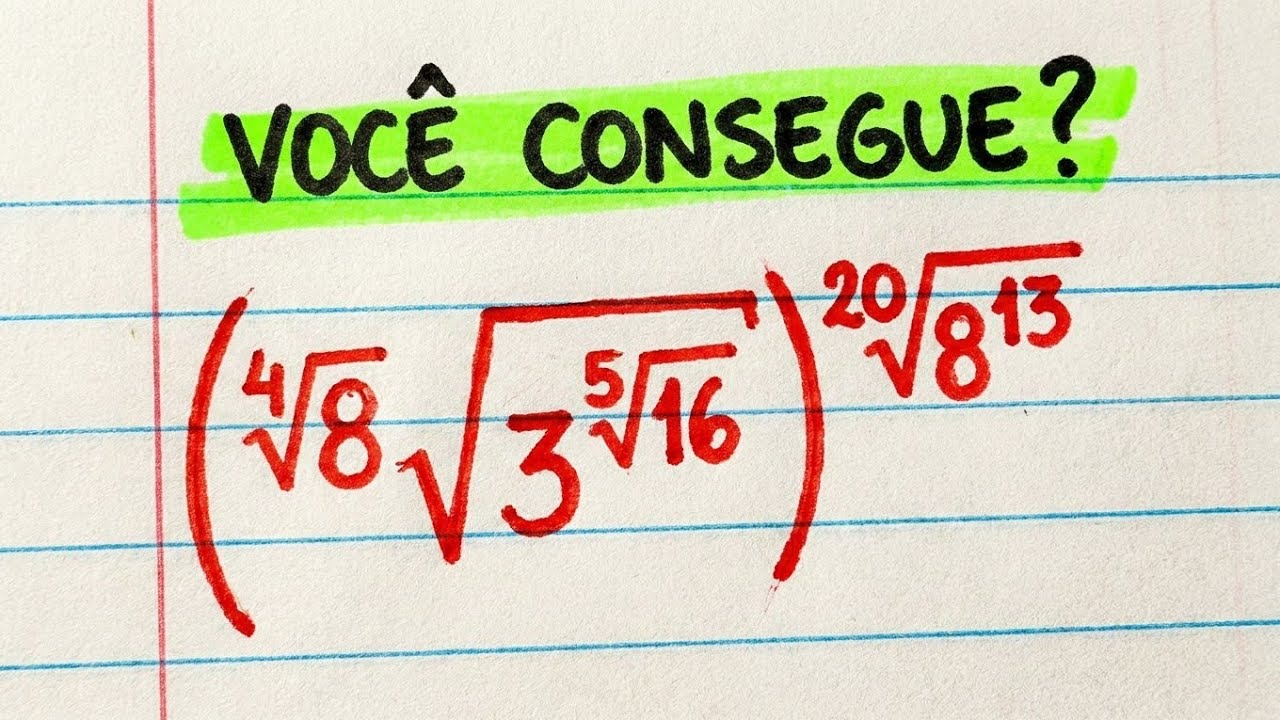 VOCÊ CONSEGUE?
(⁴√8 √(3 ⁵√16)) ²⁰√8¹³